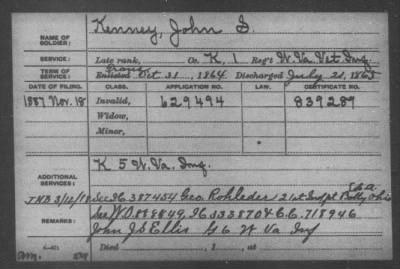 NAME OF SOLDIER: Kenney, John S.
SERVICE: Late rank, Co. K, 1 Reg't W. Va. Vet. Inf.
TERM OF SERVICE: Enlisted Oct 31, 1864 Discharged July 21, 1865
DATE OF FILING. CLASS. APPLICATION NO. LAW. CERTIFICATE NO.
1887 Nov. 18 Invalid, 629494 839289
Widow,
Minor,
ADDITIONAL SERVICES: K 5 W. Va. Inf.
REMARKS: JHB 3/12/18 See IC 387454 Geo. Rohleder 21st Indpt Batty Ohio L.A.
See WO 888849, IC 533870 & C.C. 718946
John J.S. Ellis G 6 W Va Inf
Died , 1 , at